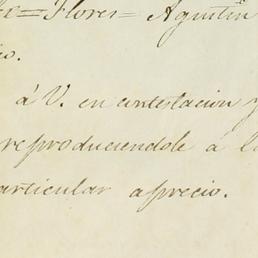 = Flores = Agustin
io.
á V. en contestacion y
reproduciendole a l
articular aprecio.